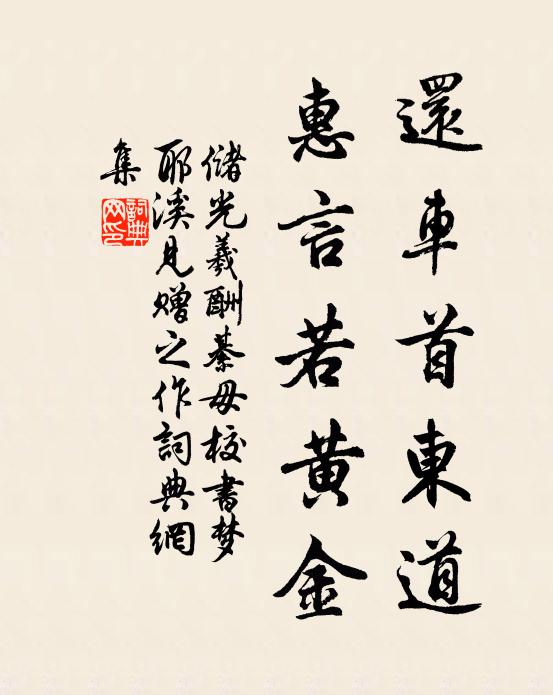 還車首東道
惠言若黃金
儲光羲酬綦毋校書梦
耶溪見赠之作詞典網
集
詞典
网印